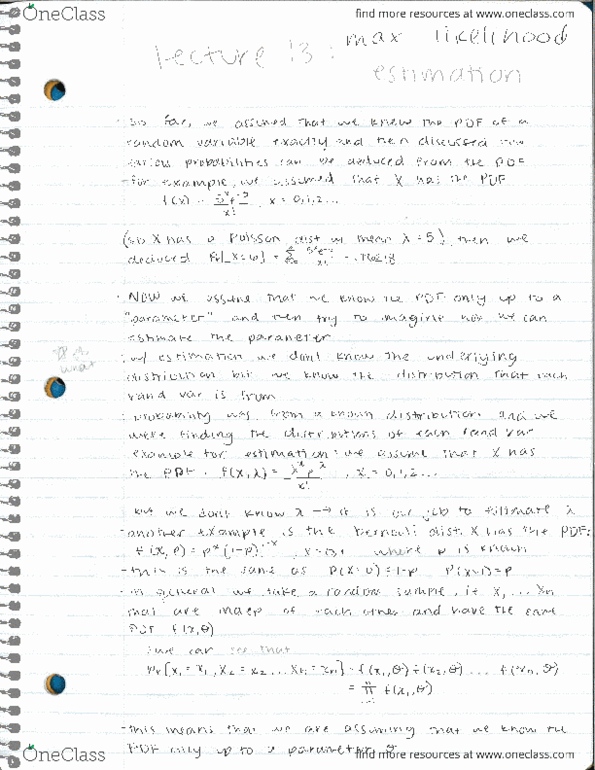 OneClass
find more resources at www.oneclass.com
Lecture 13: max likelihood
estimation
- So far, we assumed that we knew the PDF of a
random variable exactly and then discussed how
various probabilities can be deduced from the PDF
- for example, we assumed that X has the PDF
f(x) = , x = 0,1,2...
(so X has a Poisson dist w/ mean λ = 5) then we
deduced
- NOW we assume that we know the PDF only up to a
"parameter" and then try to imagine how we can
estimate the parameter
what
- w/ estimation we don't know the underlying
distribution but we know the distribution that each
rand var is from
- probability was from a known distribution and we
were finding the distributions of each rand var
example for estimation: we assume that X has
the PDF f(x,λ) = , x = 0,1,2...
but we don't know λ → it is our job to estimate λ
- another example is the bernoulli dist. X has the PDF:
f(x,p) = p^x(1-p)^1-x , where p is known
- this is the same as P(X=0)=1-p P(X=1)=p
- in general we take a random sample, ie X1 ... Xn
that are indep of each other and have the same
PDF f(x,θ)
we can see that
Pr[X1 = x1, X2 = x2 ... Xn = xn] = f(x1,θ) f(x2,θ) ... f(xn,θ)
= π f(xi,θ)
- this means that we are assuming that we know the
PDF only up to a parameter θ
OneClass
find more resources at www.oneclass.com